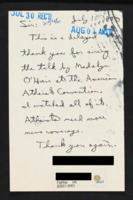 JUL 30 REC'D
July 1
Sir:
AUG 01
This is a delayed
thank you for airing
the talk by Madalyn
O'Hair at the American
Atheist Convention.
I watched all of it.
Atheists need more
news coverage.
Thank you again.